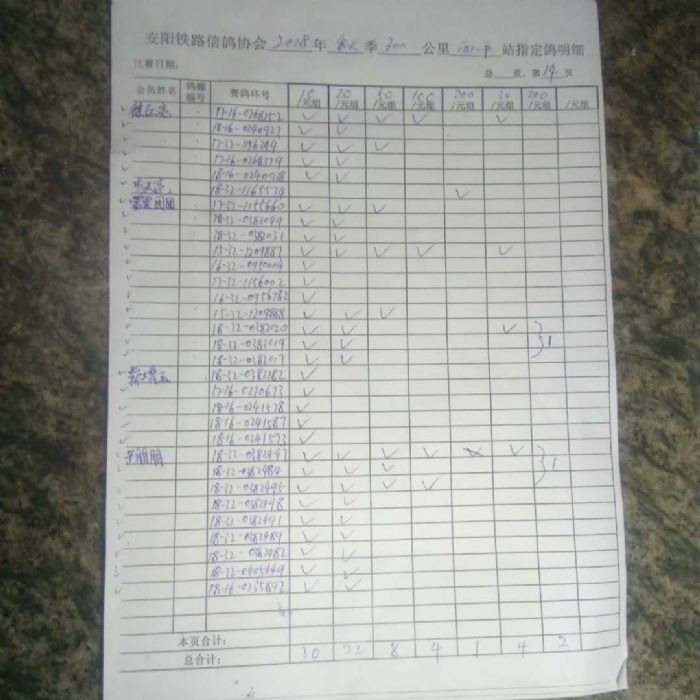 安阳铁路信鸽协会 2018 年 秋 季 300 公里 西平 站指定鸽明细
比赛日期: 总 页,第 14 页
会员姓名 鸽棚编号 赛鸽环号 10/元组 20/元组 50/元组 100/元组 200/元组 30/元组 200/元组 /元组
17-16-0268152 ✓ ✓ ✓ ✓ ✓
18-16-0240927 ✓ ✓
17-32-1156394 ✓ ✓ ✓
17-16-0268179 ✓ ✓
18-16-0240918 ✓ ✓
18-32-1165574 ✓
17-32-1155660 ✓ ✓ ✓
18-32-0382099 ✓ ✓
18-32-0382031 ✓ ✓
15-32-1209887 ✓ ✓ ✓ ✓ ✓
16-32-0920004 ✓
17-32-1156002 ✓
16-32-0956782 ✓
15-32-1209888 ✓ ✓ ✓
18-32-0382020 ✓ ✓ ✓
18-32-0382019 ✓ ✓ 1
18-32-0382017 ✓ ✓
18-32-0382182 ✓
17-16-0270673 ✓
18-16-0241578 ✓
18-16-0241587 ✓
18-16-0241573 ✓
18-32-0382497 ✓ ✓ ✓ ✓ ✓ ✓
18-32-0382484 ✓ ✓ ✓ 1
18-32-0382495 ✓ ✓ ✓ ✓
18-32-0382498 ✓ ✓
18-32-0382491 ✓ ✓
18-32-0382489 ✓ ✓
18-32-0382482 ✓ ✓
18-32-0405449 ✓ ✓
18-16-0235892 ✓ ✓
本页合计:
总合计: 30 22 8 4 1 4 2